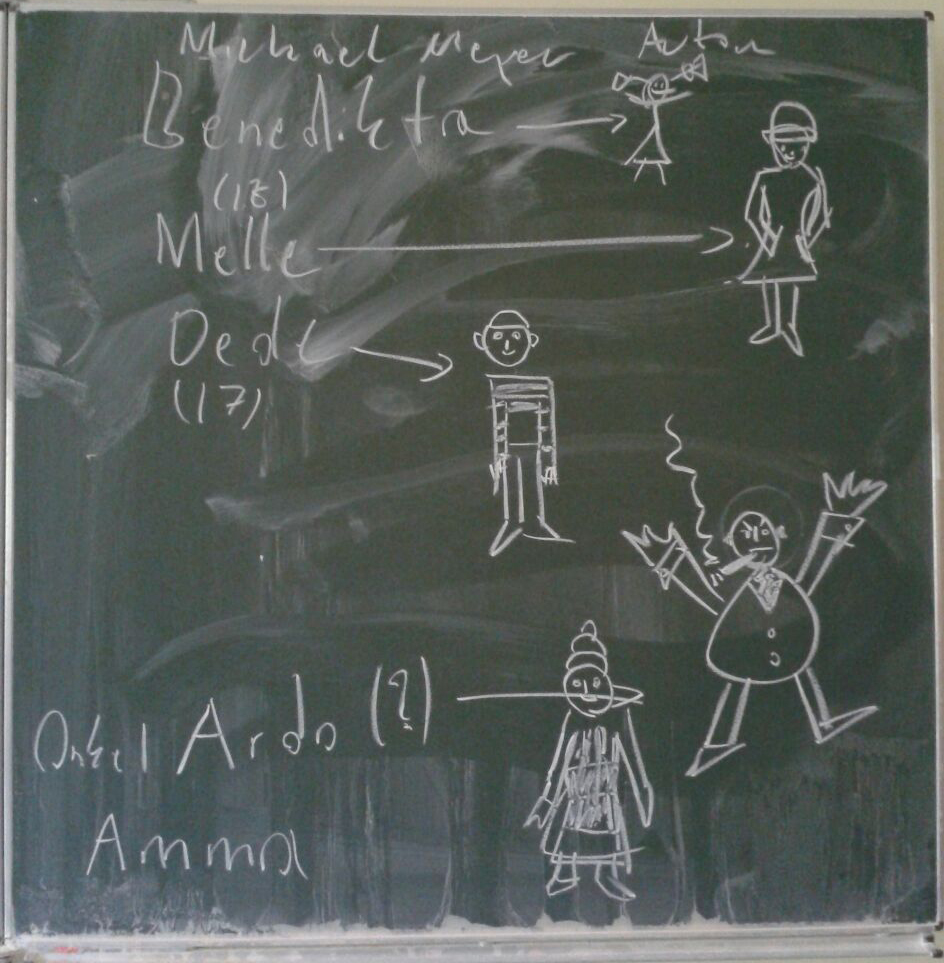 Michael Meyer Autor
Benedikta
(18)
Melle
Dede
(17)
Onkel Ardo (?)
Amma